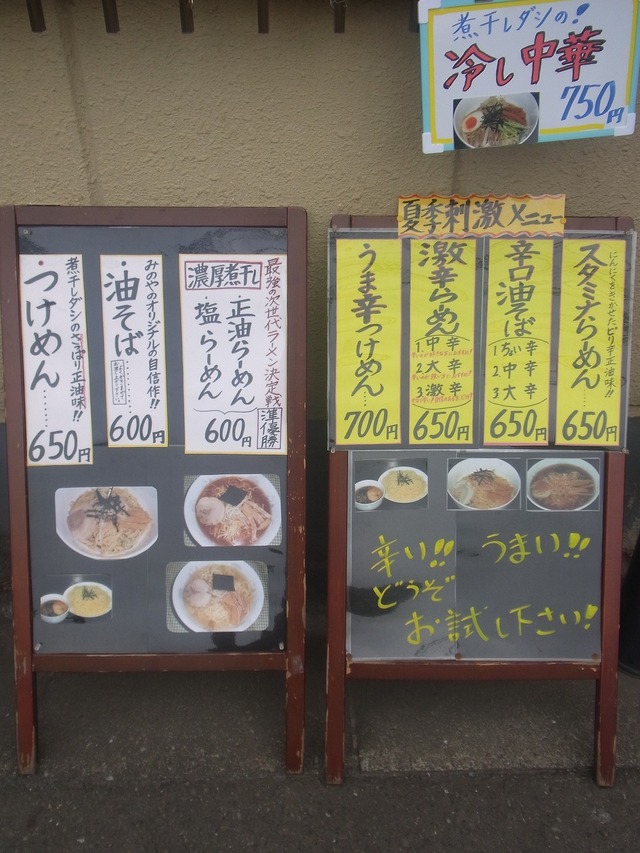 煮干しダシの!
冷し中華
750円
最強の次世代ラーメン決定戦
準優勝
濃厚煮干し
正油らーめん
塩らーめん
600円
みのやのオリジナルの自信作!!
油そば
600円
煮干しダシのさっぱり正油味!!
つけめん
650円
夏季刺激メニュー
にんにくをきかせたピリ辛正油味!!
スタミナらーめん
650円
辛口油そば
1ちょい辛
2中辛
3大辛
650円
激辛らーめん
1中辛
2大辛
3激辛
650円
うま辛つけめん
700円
辛い!! うまい!!
どうぞ
お試し下さい!